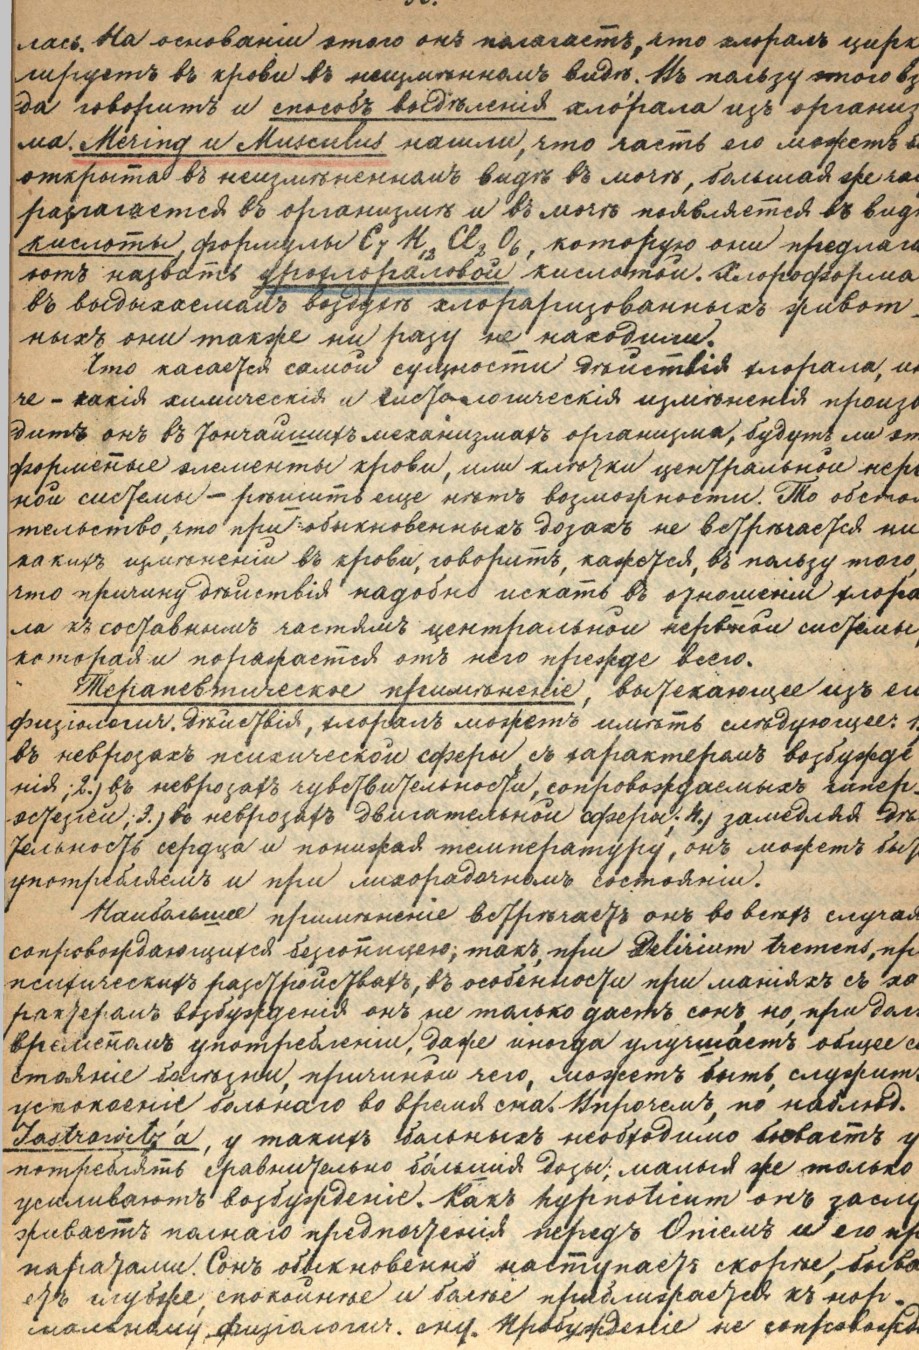 лась. На основаніи этого онъ полагаетъ, что хлоралъ цирк
лируетъ въ крови въ неизмѣнномъ видѣ. Въ пользу этого вз
да говоритъ и способъ выдѣленія хлорала изъ организ
ма. Mering и Musculus нашли, что часть его можетъ б
открыта въ неизмѣненномъ видѣ въ мочѣ, большая же час
разлагается въ организмѣ и въ мочѣ появляется въ видѣ
кислоты, формулы C7 H12 Cl2 O6, которую они предлага
ютъ назвать урохлораловой кислотой. Хлороформа
въ выдыхаемомъ воздухѣ хлорализованныхъ живот_
ныхъ они также ни разу не находили.
Что касается самой сущности дѣйствія хлорала, ин
че – какія химическія и гистологическія измѣненія произво
дитъ онъ въ тончайшихъ механизмахъ организма, будутъ ли эт
форменные элементы крови, или клѣтки центральной нерв
ной системы – рѣшить еще нѣтъ возможности. То обстоя
тельство, что при обыкновенныхъ дозахъ не встрѣчается ни
какихъ измѣненій въ крови, говоритъ, кажется, въ пользу того,
что причину дѣйствія надобно искать въ отношеніи хлора
ла къ составнымъ частямъ центральной нервной системы
которая и поражается отъ него прежде всего.
Терапевтическое примѣненіе, вытекающее изъ ег
физіологич. дѣйствія, хлоралъ можетъ имѣть слѣдующее: 1.
въ неврозахъ психической сферы съ характеромъ возбужде
нія; 2.) въ неврозахъ чувствительности, сопровождаемыхъ гипер.
эстезіей; 3.) въ неврозахъ двигательной сферы; 4.) замедляя дѣя
тельность сердца и понижая температуру, онъ можетъ быт
употребляемъ и при лихорадочномъ состояніи.
Наибольшее примѣненіе встрѣчаетъ онъ во всѣхъ случая
сопровождающихся безсонницею; такъ, при Delirium tremens, пр
психическихъ разстройствахъ, въ особенности при маніяхъ съ ха
рактеромъ возбужденія онъ не только даетъ сонъ, но, при долг
временномъ употребленіи, даже иногда улучшаетъ общее с
стояніе болѣзни, причиной чего, можетъ быть, служитъ
успокоеніе больнаго во время сна. Впрочемъ, по наблюд.
Jastrowitz'а, у такихъ больныхъ необходимо бываетъ у
потреблять сравнительно бо́льшія дозы; малыя же только
усиливаютъ возбужденіе. Какъ hypnoticum онъ заслу
живаетъ полнаго предпочтенія передъ Опіемъ и его пр
паратами. Сонъ обыкновенно наступаетъ скорѣе, быва
етъ глубже, спокойнѣе и болѣе приближается къ нор_
мальному физіологич. сну. Пробужденіе не сопровожд